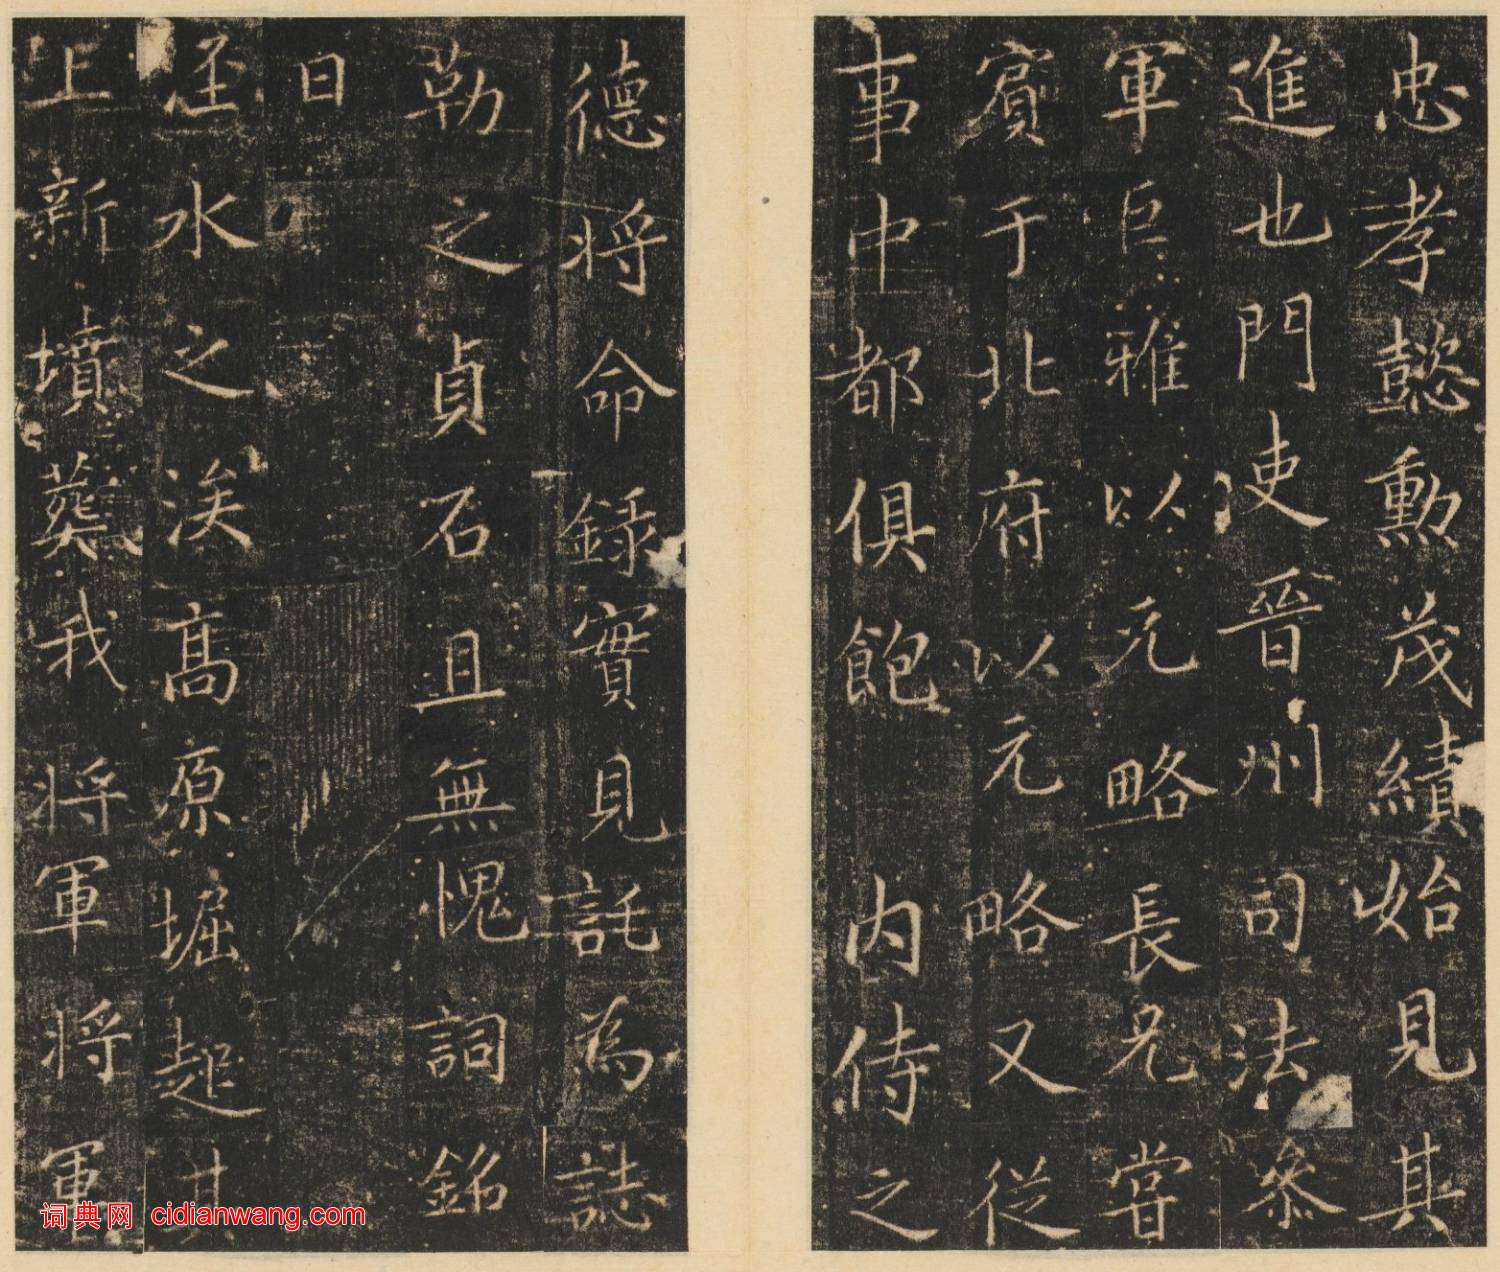 忠孝懿勳茂績始見其
進也門吏晉州司法參
軍巨雅以元略長兄嘗
賓于北府以元略又從
事中都俱飽內侍之
德將命錄實見託為誌
勒之貞石且無愧詞銘
曰
水之涘高原堀起其
上新墳葬我將軍將軍
词典网 cidianwang.com